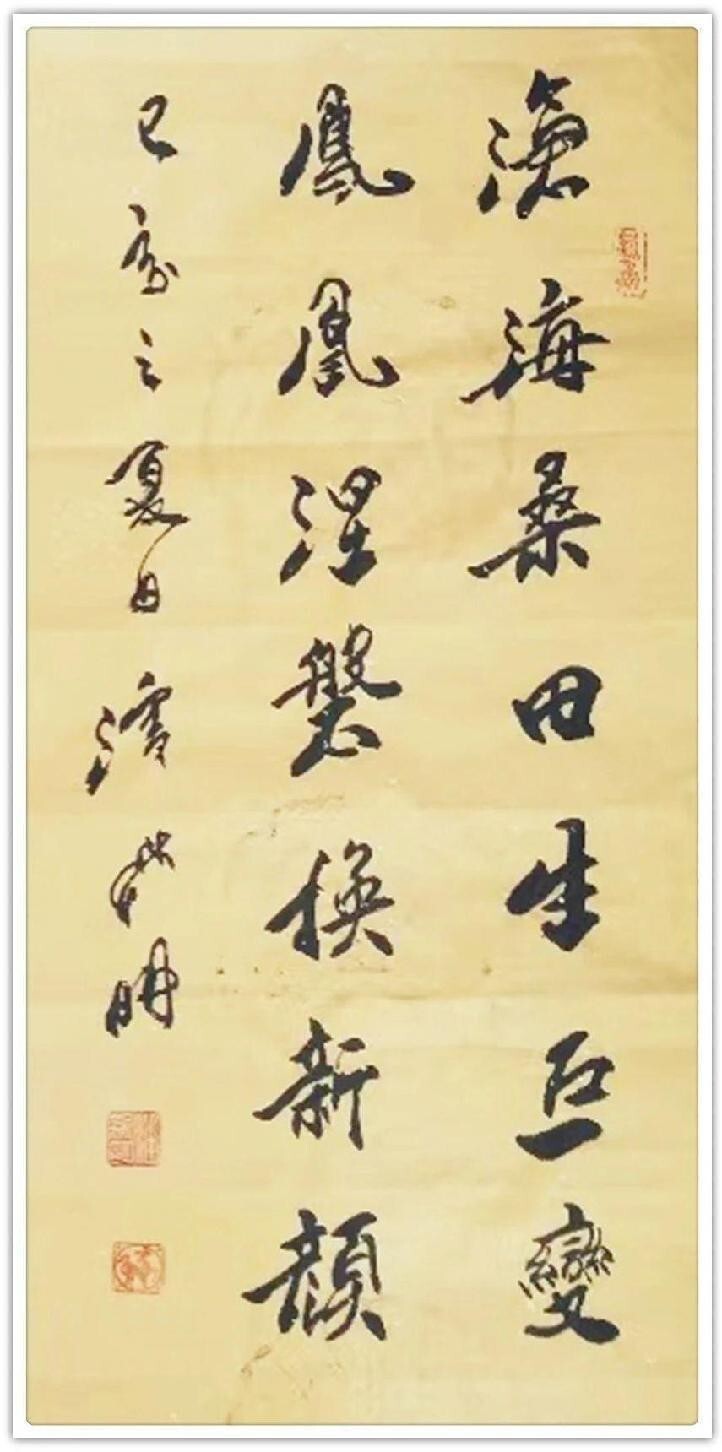 滄海桑田生巨變
鳳凰涅槃換新顏
己亥之夏日明